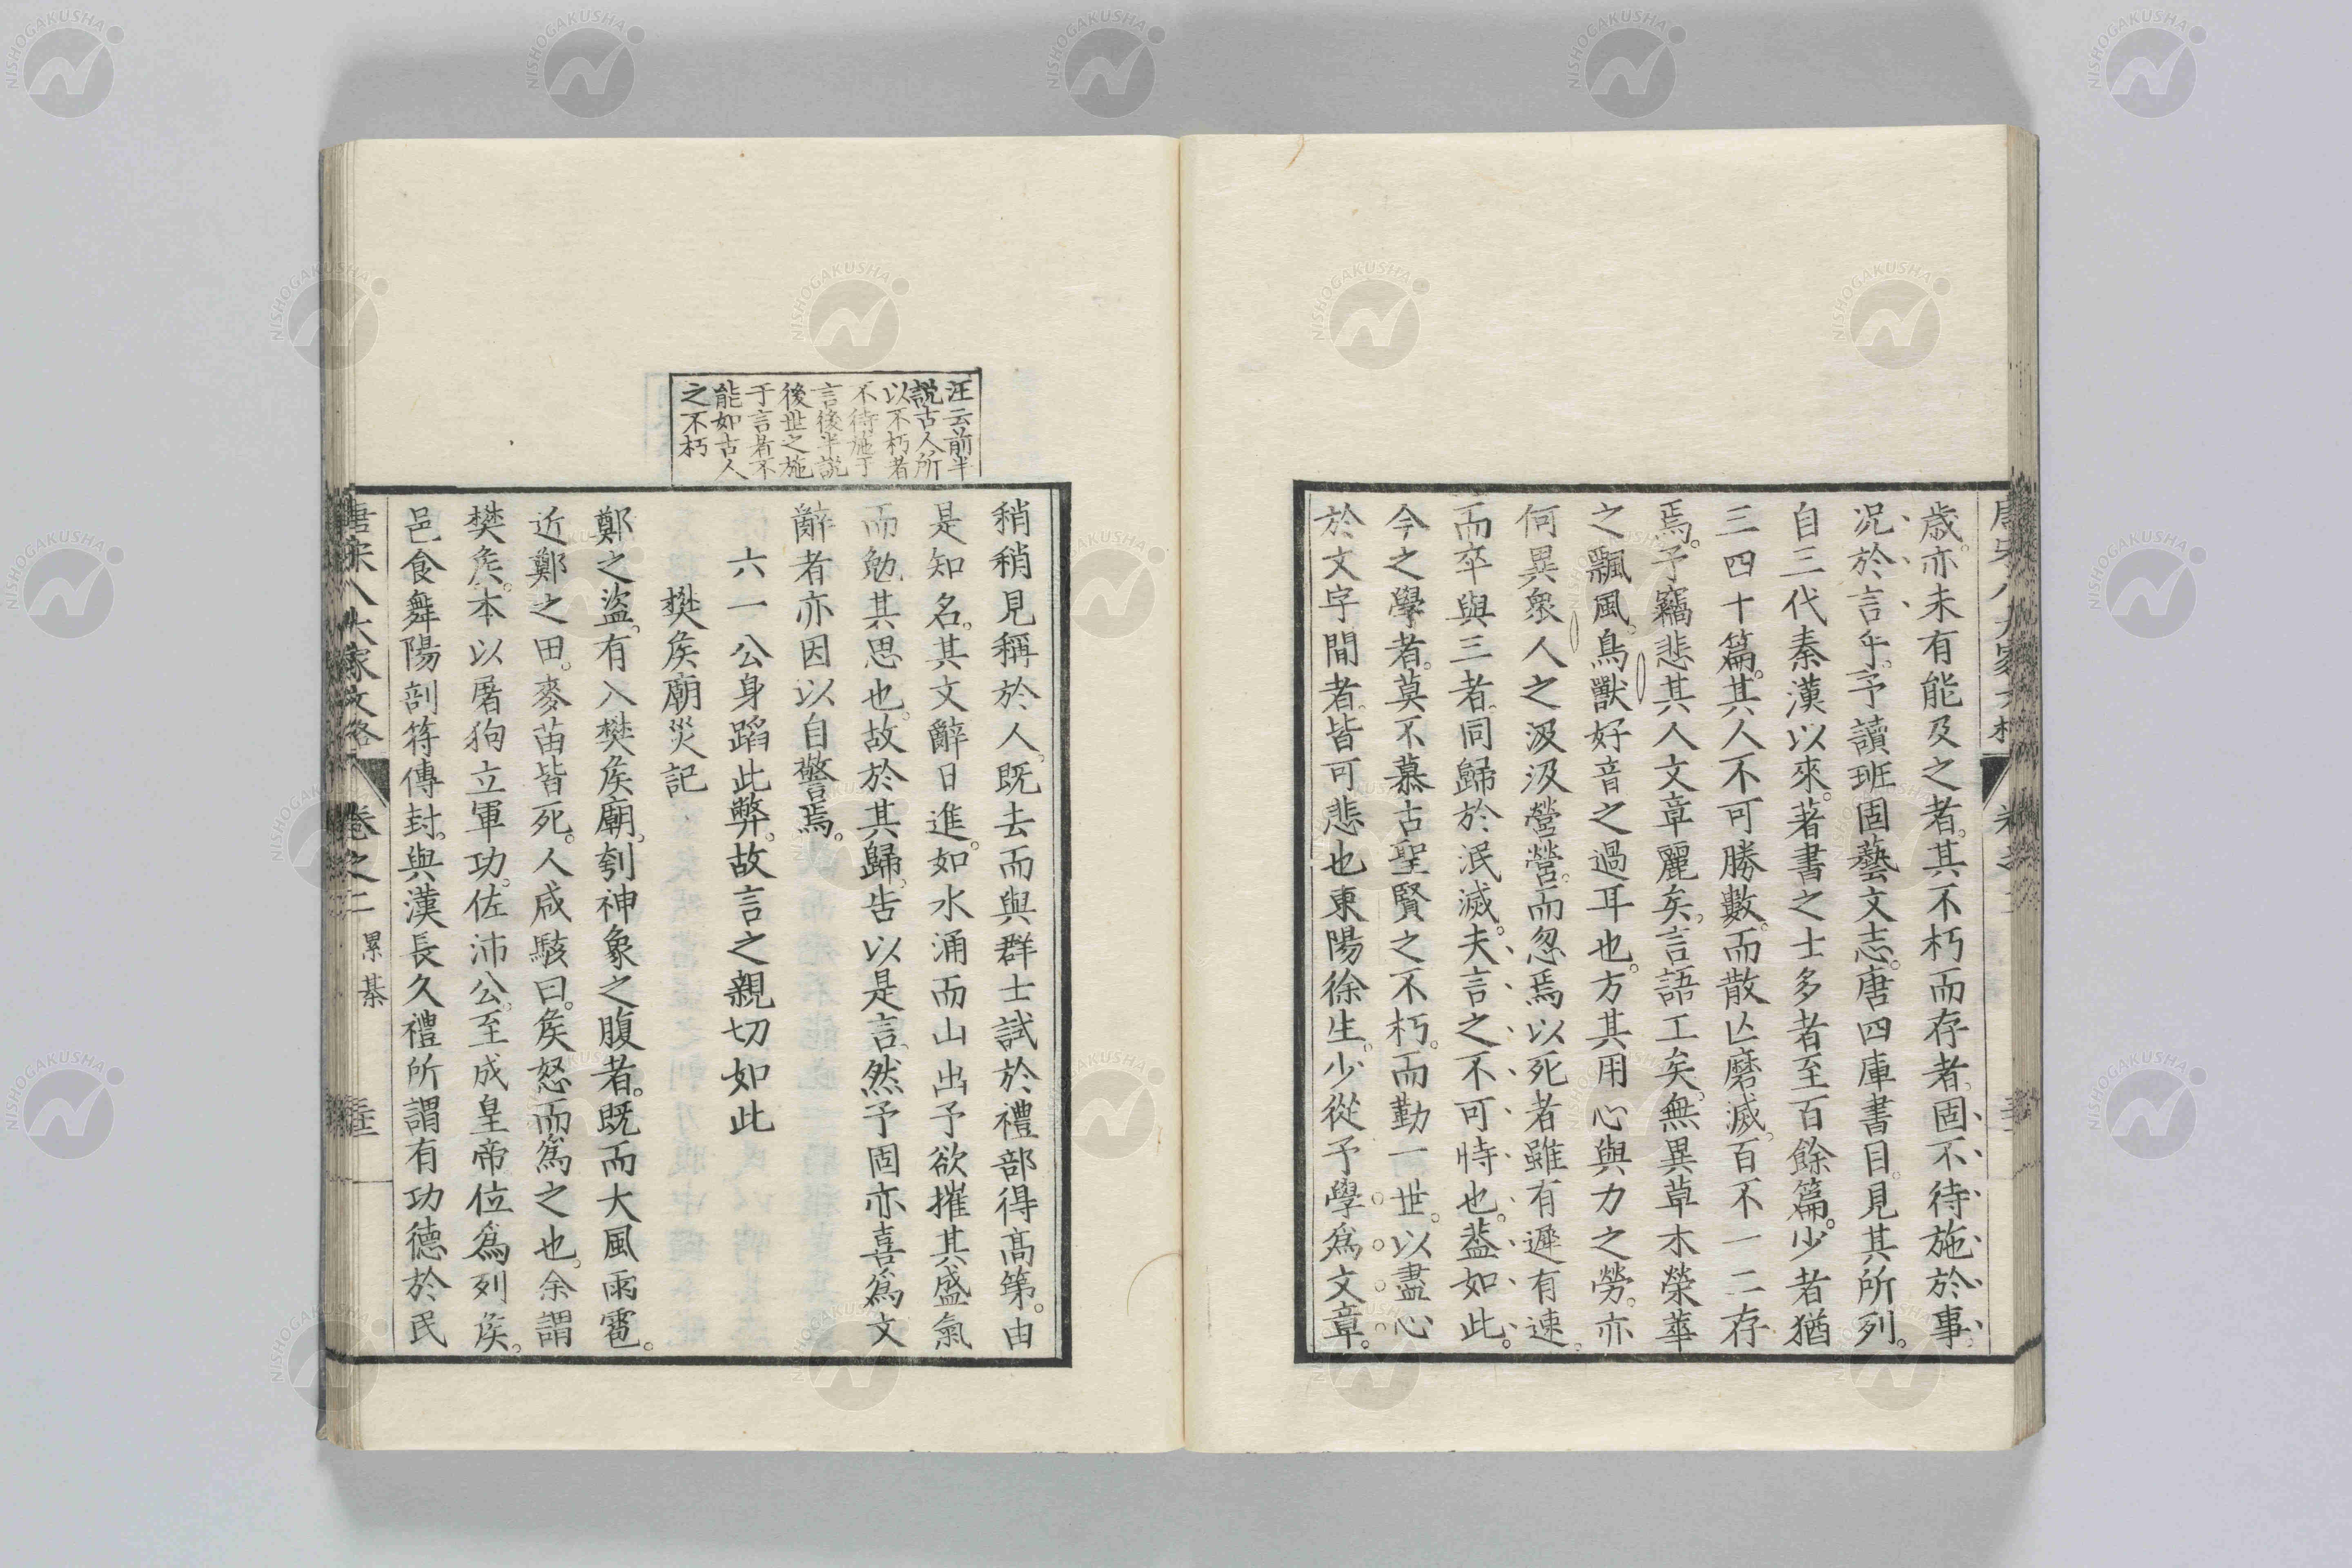 歳。亦未有能及之者。其不朽而存者。固不待施於事。
况於言乎。予讀班固藝文志。唐四庫書目。見其所列。
自三代秦漢以來。著書之士多者至百餘篇。少者猶
三四十篇。其人不可勝數。而散亾磨滅。百不一二存
焉。予竊悲其人文章麗矣。言語工矣。無異草木榮華
之飄風。鳥獸好音之過耳也。方其用心與力之勞。亦
何異衆人之汲汲營營。而忽焉以死者雖有遲有速。
而卒與三者。同歸於泯滅。夫言之不可恃也。葢如此。
今之學者。莫不慕古聖賢之不朽。而勤一世。以盡心
於文字間者。皆可悲也東陽徐生。少從予學爲文章。
汪云前半
説古人所
以不朽者
不待施于
言後半説
後世之施
于言者不
能如古人
之不朽
稍稍見稱於人。既去而與群士試於禮部得髙第。由
是知名。其文辭日進。如水涌而山出予欲摧其盛氣
而勉其思也。故於其歸。告以是言。然予固亦喜爲文
辭者亦因以自警焉。
六一公身蹈此弊。故言之親切如此
樊矦廟災記
鄭之盜。有入樊矦廟。刳神象之腹者。既而大風雨雹。
近鄭之田。麥苗皆死。人咸駭曰。矦怒而爲之也。余謂
樊矦。本以屠狗立軍功。佐沛公。至成皇帝位爲列矦。
邑食舞陽剖符傳封。與漢長久禮所謂有功德於民
唐宋八大家文格
卷之二
累棊